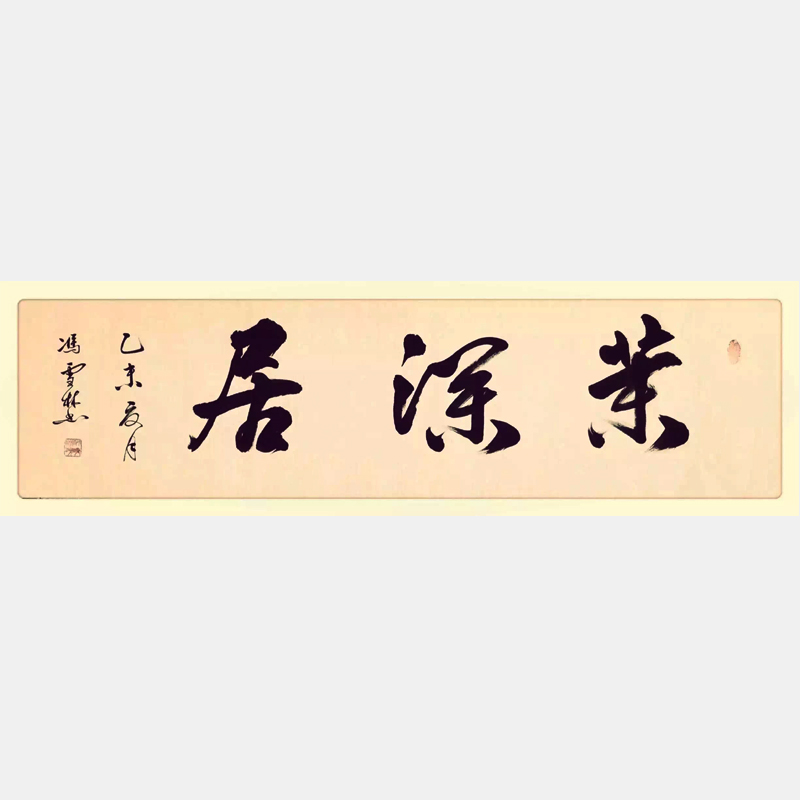 深居
乙未夏月
馮雪林书